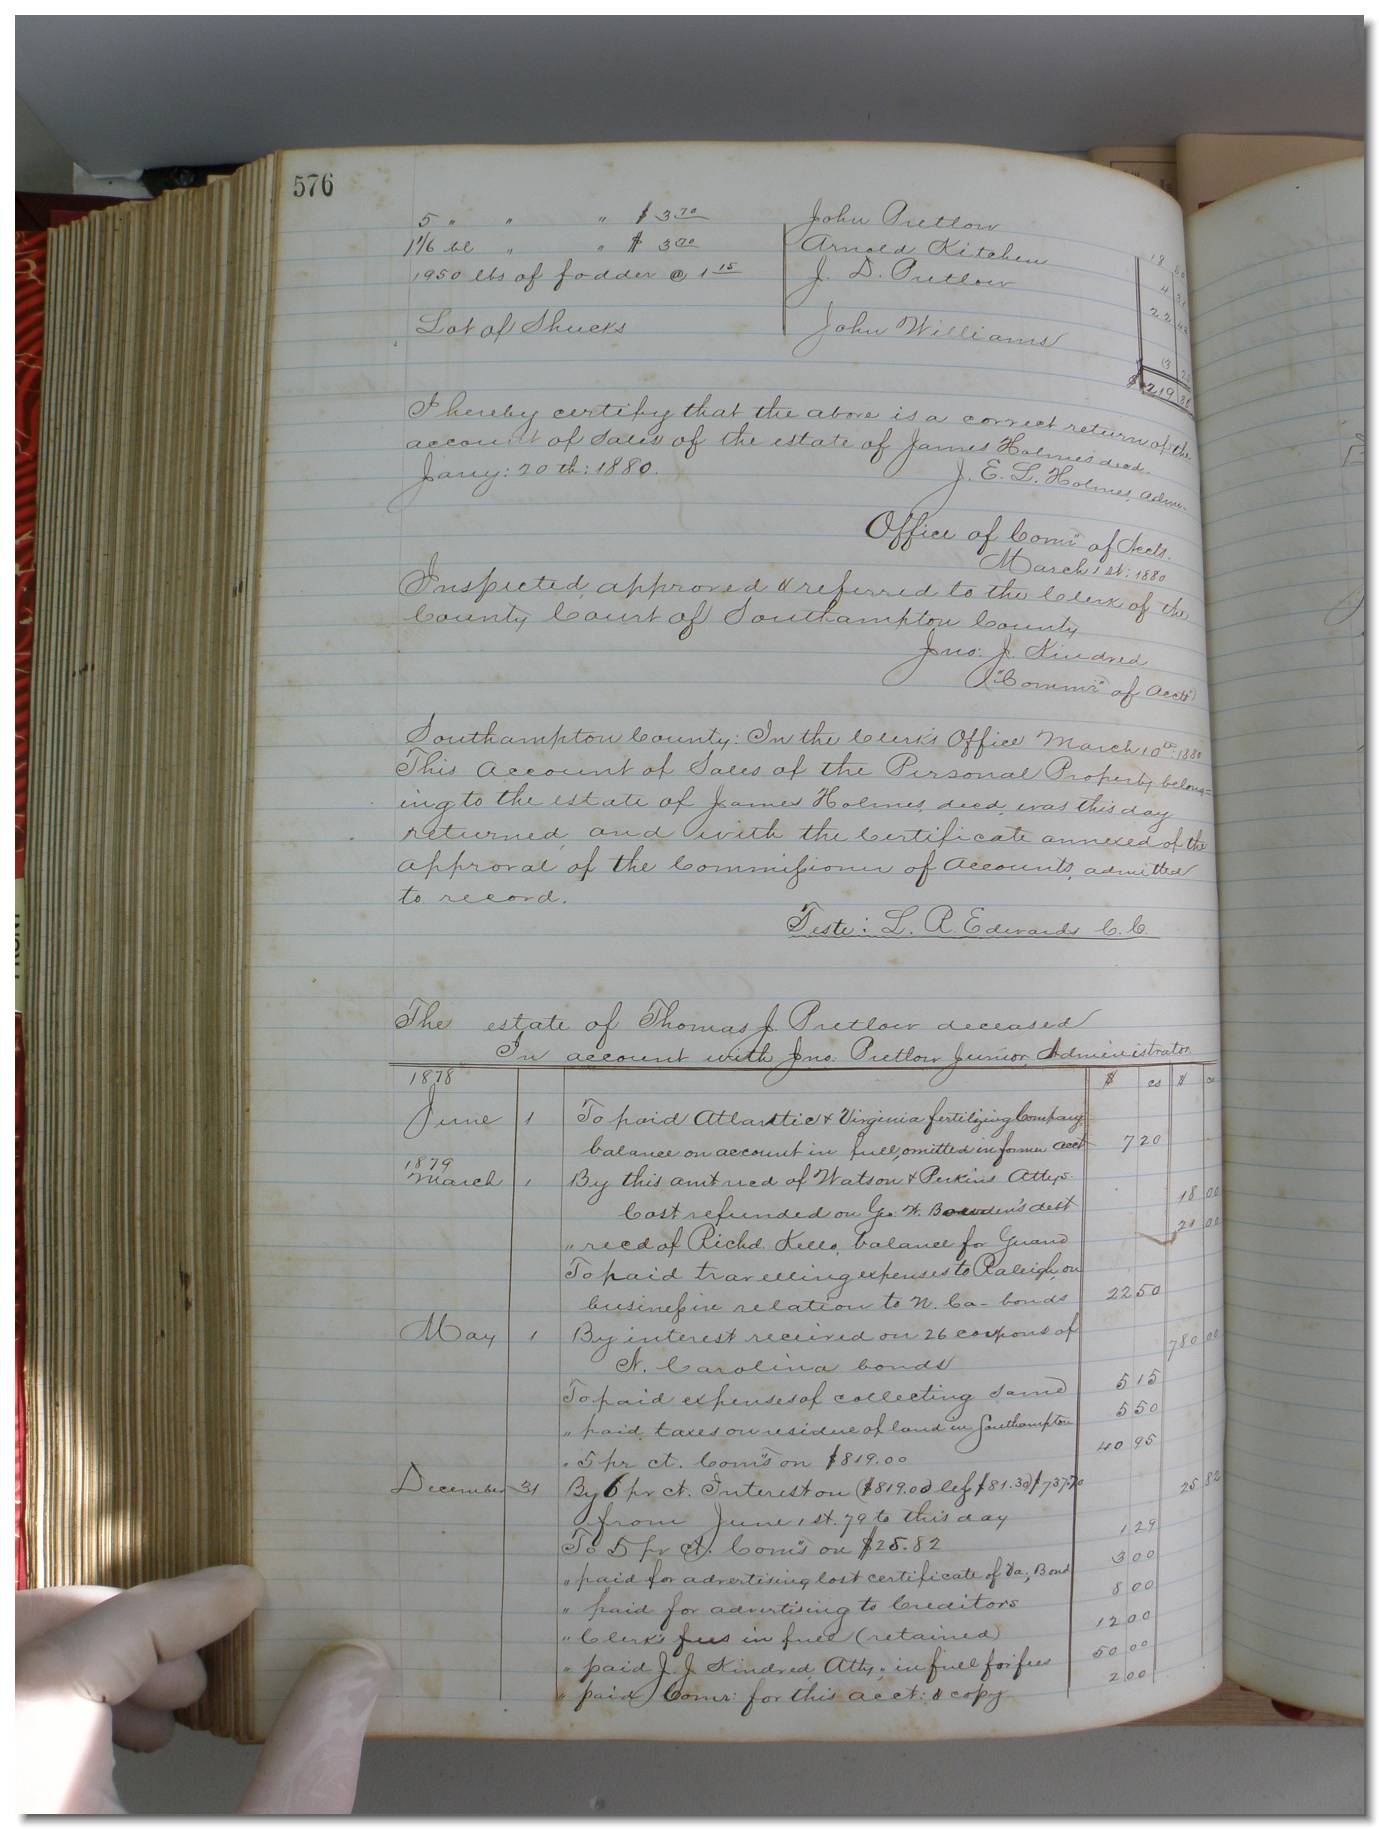 576
5 " " " $ 3 70 John Pretlow 18 50
1 1/6 bl " " $ 3 70 Arnold Kitchen 4 31
1950 lbs of fodder @ 1 15 J. D. Pretlow 22 42
Lot of Shucks John Williams 13
$ 219
I hereby certify that the above is a correct return of the
account of sales of the estate of James Holmes decd.
Jany: 20th: 1880. J. E. L. Holmes, Admr.
Office of Comr of Accts.
March 1st: 1880
Inspected, approved & referred to the Clerk of the
County Court of Southampton County
Jno: J. Kindred
("Commr" of Accts")
Southampton County: In the Clerk's Office March 10th: 1880
This Account of Sales of the Personal Property belong=
ing to the estate of James Holmes, decd, was this day
returned, and with the Certificate annexed of the
approval of the Commissioner of Accounts, admitted
to record.
Teste: L. R. Edwards C. C.
The estate of Thomas J. Pretlow deceased
In account with Jno. Pretlow Junior, Administrator
1878 $ cs $ cs
June 1 To paid Atlantic & Virginia fertilizing Company
balance on account in full, omitted in former acct 7 20
1879
March 1 By this amt recd of Watson & Perkins Attys.
Cost refunded on Geo. W. Bowden's debt 18 00
" recd of Richd. Kello, balance for Guano 21 00
To paid travelling expenses to Raleigh, on
business in relation to N. Ca- bonds 22 50
May 1 By interest received on 26 coupons of
N. Carolina bonds 780 00
To paid expenses of collecting same 5 15
" paid taxes on residue of land in Southampton 5 50
" 5 pr ct. Coms on $819.00 40 95
December 31 By 6 pr ct. Interest on ($819.00 less $81.30) $737.70 25 82
from June 1st. 79 to this day
To 5 pr ct. Coms on $25.82 1 29
" paid for advertising lost certificate of Va; Bond 3 00
" paid for advertising to Creditors 8 00
" Clerk's fees in full (retained) 12 00
" paid J. J. Kindred, Atty. in full for fees 50 00
" paid Comr: for this acct: & copy 2 00